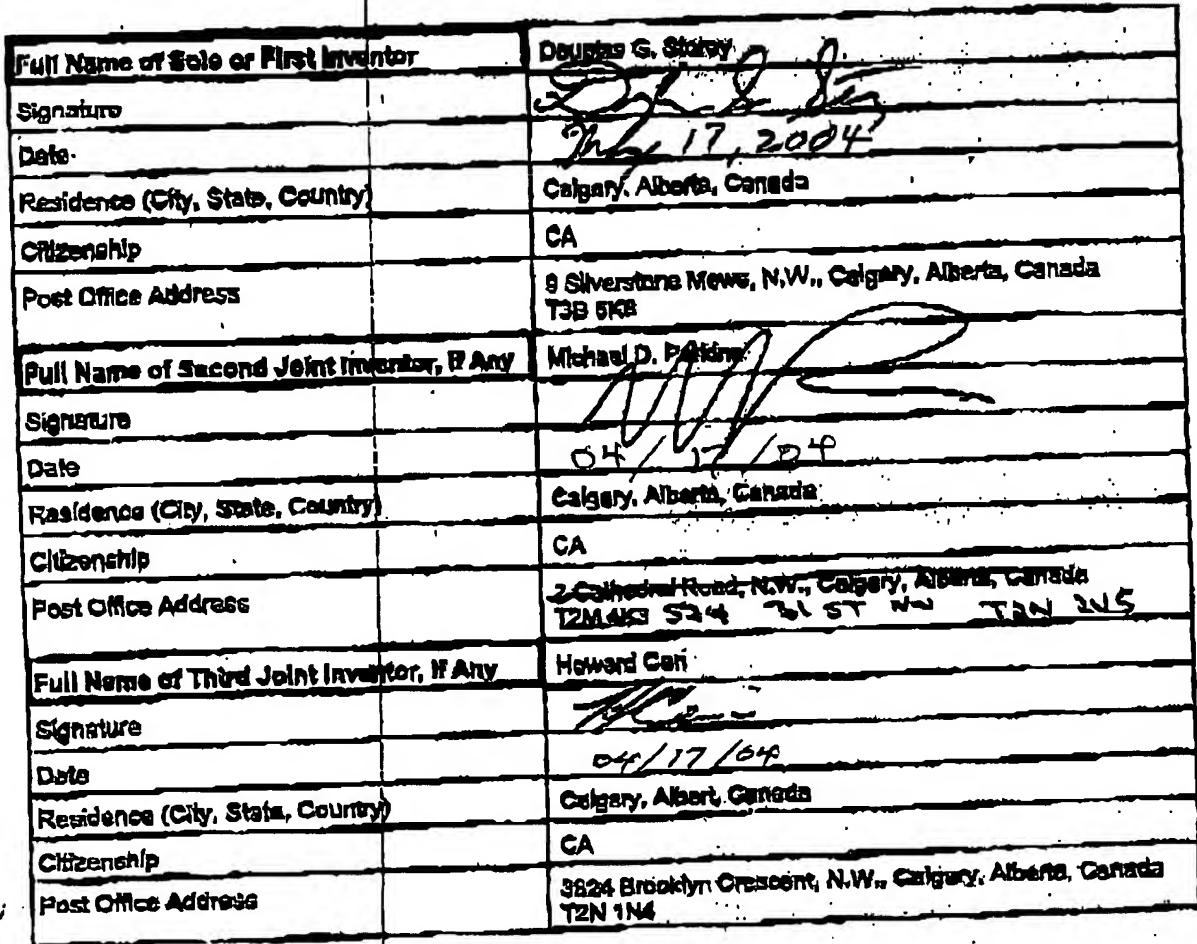 Full Name of Sole or First Inventor Douglas G. Storey
Signature
Date May 17, 2004
Residence (City, State, Country) Calgary, Alberta, Canada
Citizenship CA
Post Office Address 9 Silverstone Mews, N.W., Calgary, Alberta, Canada
T3B 5K8
Full Name of Second Joint Inventor, If Any Michael D. Parkins
Signature
Date 04/17/04
Residence (City, State, Country) Calgary, Alberta, Canada
Citizenship CA
Post Office Address 2 Cathedral Road, N.W., Calgary, Alberta, Canada
T2M 4K3 524 31 ST NW T2N 2V5
Full Name of Third Joint Inventor, If Any Howard Ceri
Signature
Date 04/17/04
Residence (City, State, Country) Calgary, Albert, Canada
Citizenship CA
Post Office Address 3824 Brooklyn Crescent, N.W., Calgary, Alberta, Canada
T2N 1N4